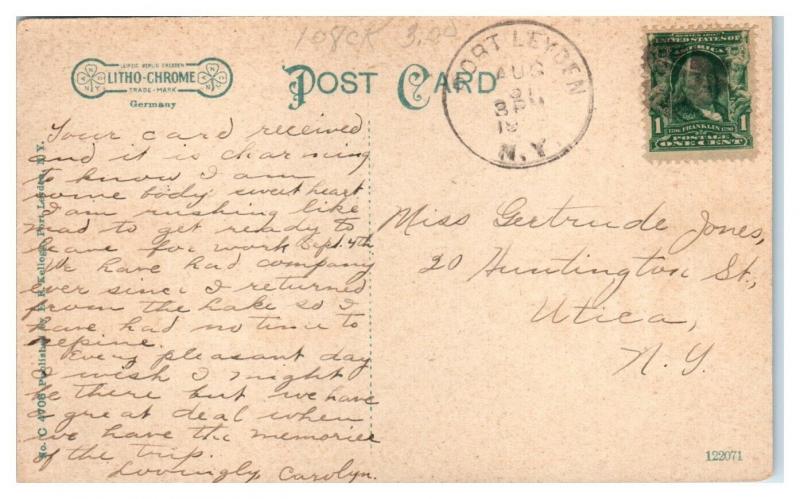 108CK 3.00
LEIPZIG BERLIN DRESDEN
LITHO-CHROME
TRADE-MARK
Germany
POST CARD
PORT LEYDEN
AUG
31
3 PM
19
N.Y.
SERIES 1902
UNITED STATES OF
AMERICA
1706 FRANKLIN 1790
POSTAGE
1 ONE CENT 1
Your card received
and it is charming
to know I am
some body sweet heart
I am rushing like
mad to get ready to
leave for work Sept. 4th
We have had company
ever since I returned
from the lake so I
have had no time to
repine.
Every pleasant day
I wish I might
be there but we have
a great deal when
we have the memories
of the trip.
Lovingly Carolyn.
Miss Gertrude Jones,
20 Huntington St.,
Utica,
N.Y.
No. C 4708 Published by Kellogg, Port Leyden, N. Y.
122071